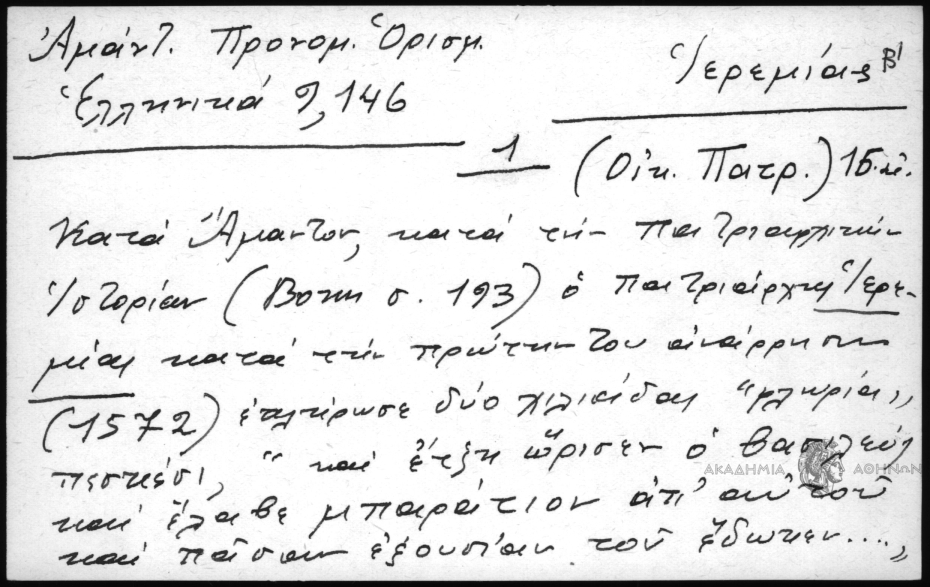 Ἀμάντ. Προνομ. Ὁρισμ.
Ἑλληνικά 9, 146
Ἰερεμίας Β'
1
(Οἰκ. Πατρ.) 16.αἰ.
Κατά Ἄμαντον, κατά τήν Πατριαρχικήν
Ἱστορίαν (Βόννη σ. 193) ὁ Πατριάρχης Ἰερε-
μίας κατά τήν πρώτην του ἀνάρρησιν
(1572) ἐπλήρωσε δύο χιλιάδας "φλωρία,,
πεσκέσι, " καί ἔτζη ὥρισεν ὁ βασιλεύς
καί ἔλαβε μπαράτιον ἀπ' αὐτοῦ
καί πᾶσαν ἐξουσίαν τοῦ ἔδωκεν....,,
ΑΚΑΔΗΜΙΑ ΑΘΗΝΩΝ